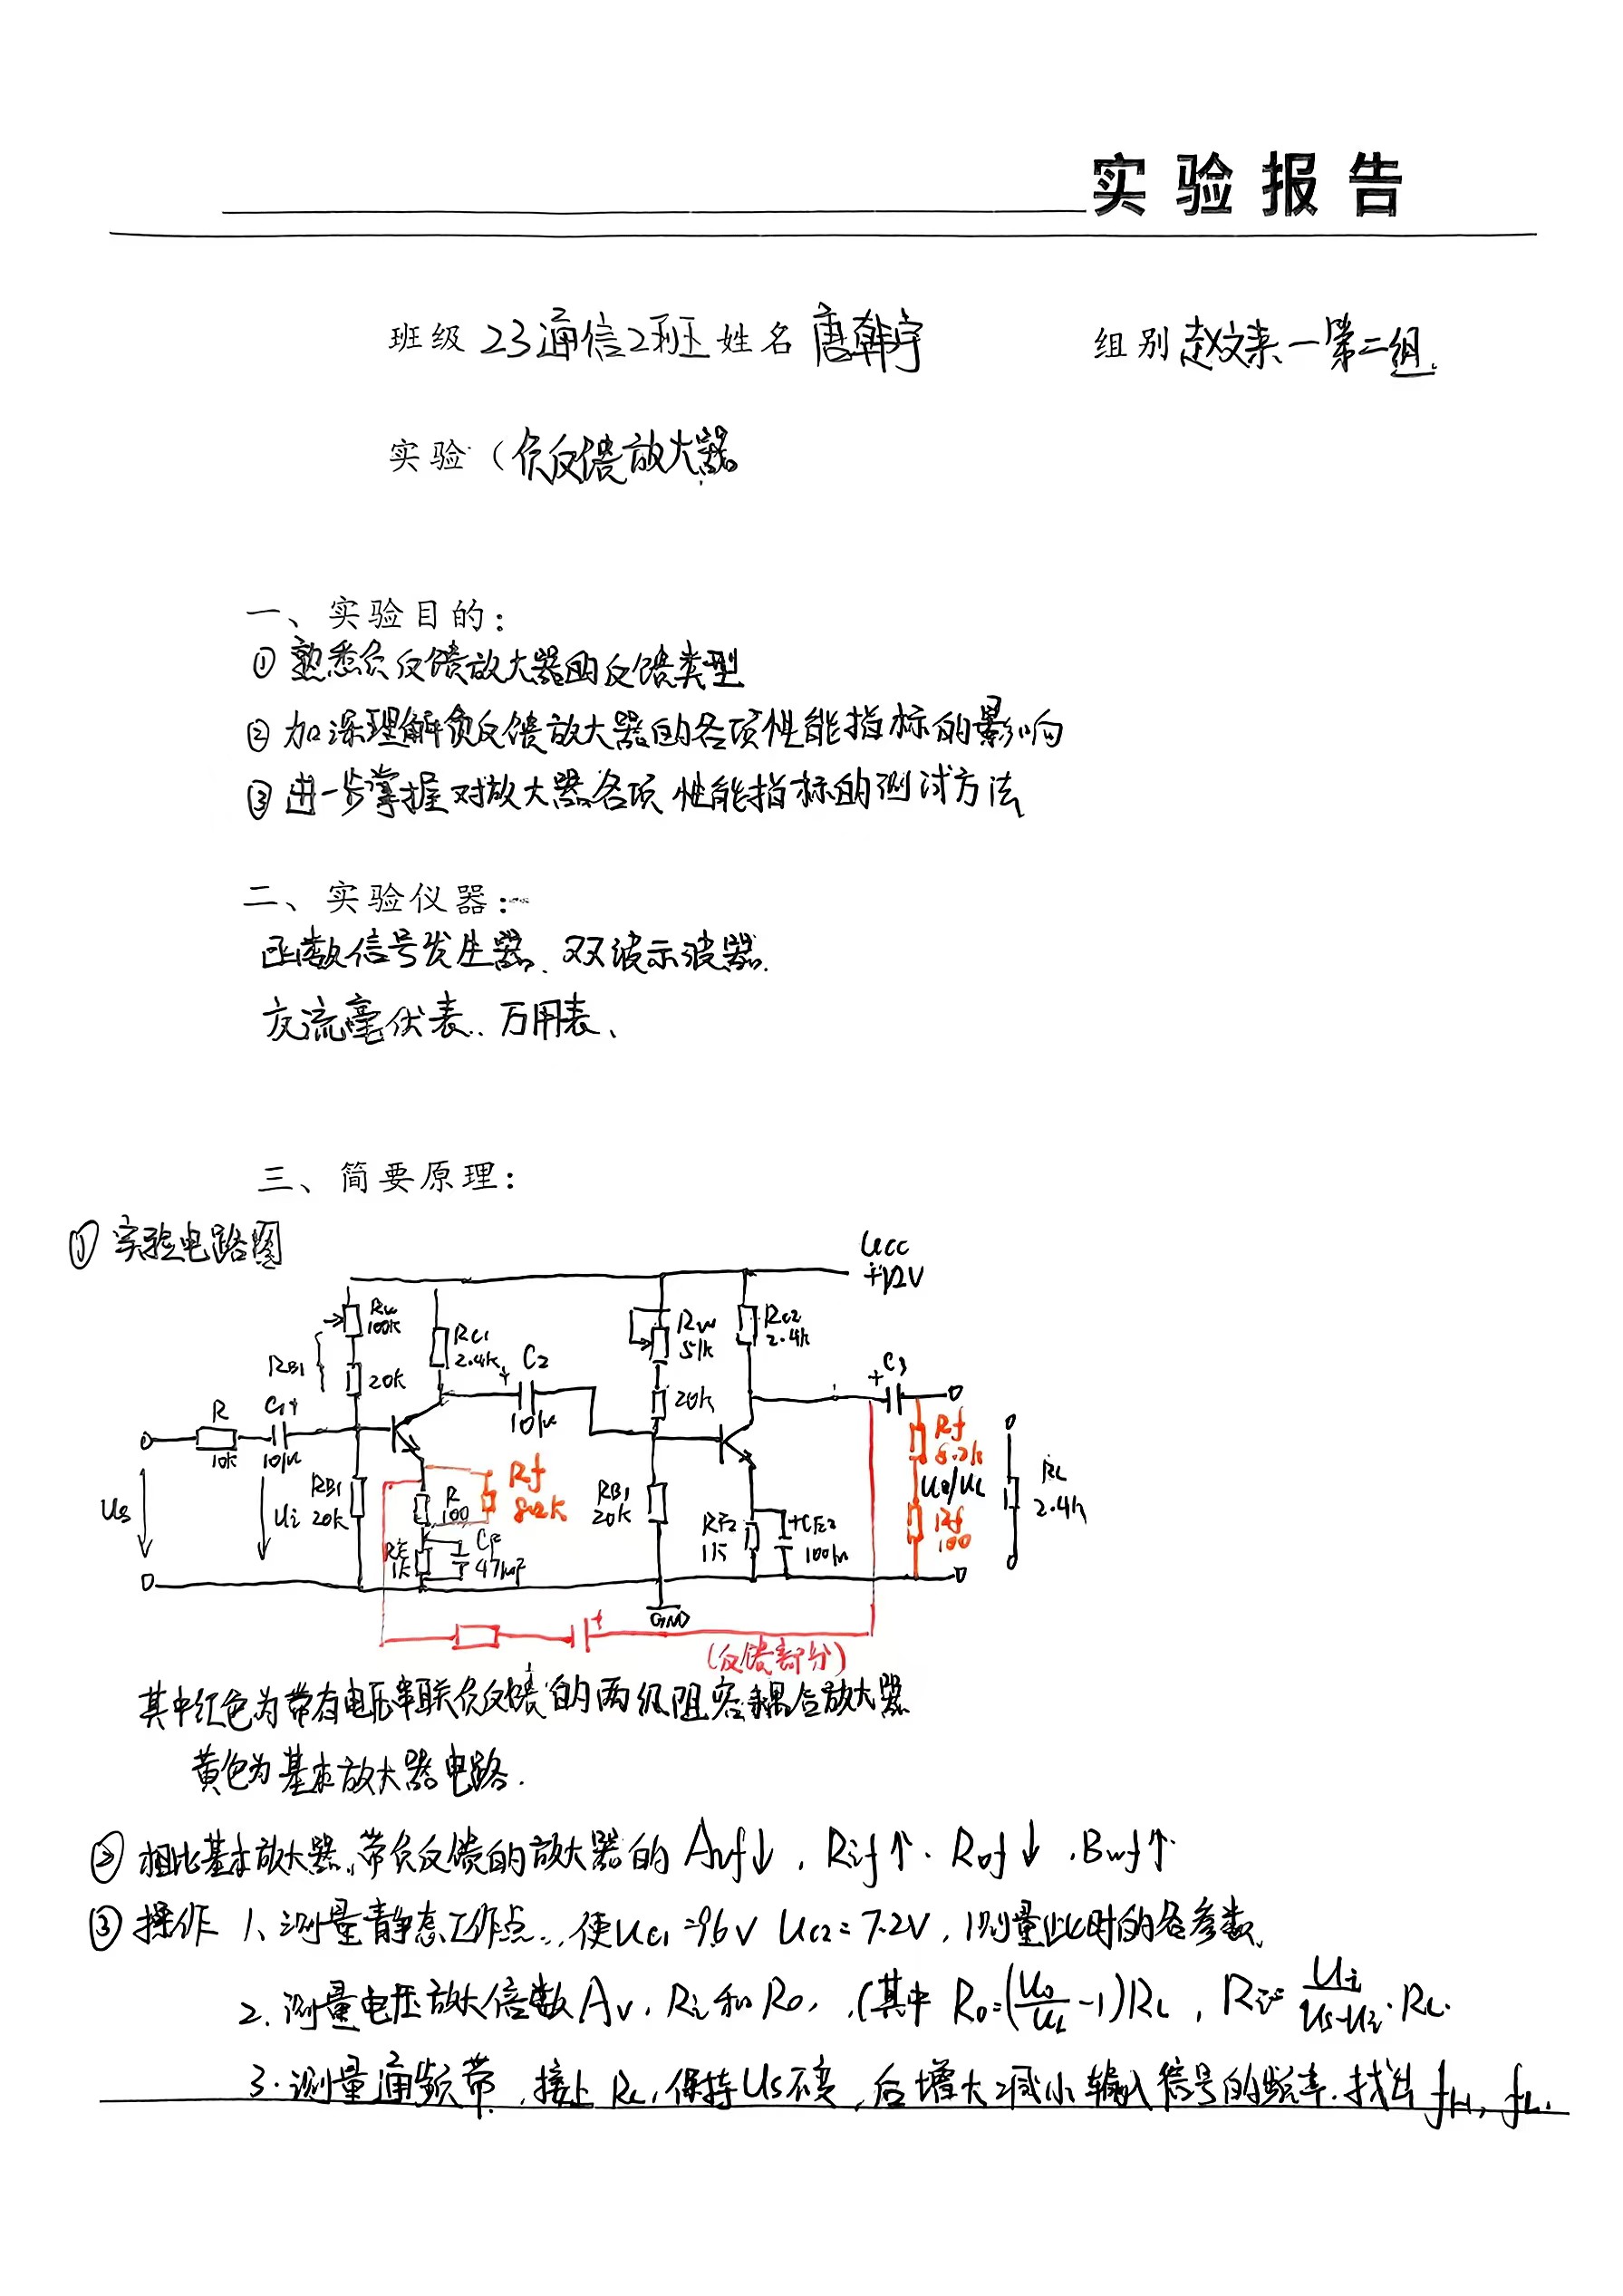 实验报告
班级 23通信2班 姓名 唐韩宇 组别 赵文来一第二组.
实验（负反馈放大器
一、实验目的：
① 熟悉负反馈放大器的反馈类型
② 加深理解负反馈放大器的各项性能指标的影响
③ 进一步掌握对放大器各项性能指标的测试方法
二、实验仪器：
函数信号发生器、双波示波器.
交流毫伏表、万用表、
三、简要原理：
① 实验电路图
Ucc
+12V
Rw
100k
RB1
20k
RC1
2.4k
+
C2
10μ
Rw
51k
20k
RC2
2.4k
+
C3
R
10k
C1+
10μ
Us
Ui
RB1
20k
R
100
Rf
8.2k
RE
1k
CE
47μF
RB1
20k
RE2
1k
+CE2
100μ
Rf
8.2k
Uo/UL
Rf
100
RL
2.4k
GND
+
(反馈部分)
其中红色为带有电压串联负反馈的两级阻容耦合放大器
黄色为基本放大器电路.
② 相比基本放大器,带负反馈的放大器的 Auf↓, Rif↑. Rof↓, Bwf↑.
③ 操作 1、测量静态工作点..,使Uc1=9.6V Uc2=7.2V,测量此时的各参数.
2. 测量电压放大倍数Av, Ri和Ro, (其中 Ro=(Uo/UL -1)RL, Ri= Ui/(Us-Ui)·RL.
3. 测量通频带,接上RL,保持Us不变,后增大减小输入信号的频率.找出fH, fL.